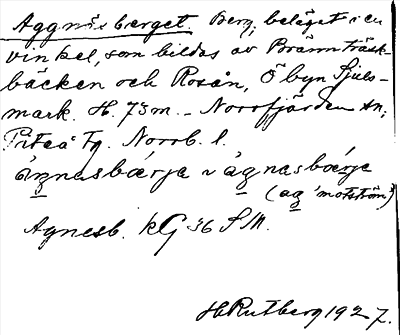 Aggnäsberget. Berg, beläget i en
vinkel, som bildas av Brännträsk-
bäcken och Rosån, Ö byn Sjuls-
mark. H. 73 m. - Norrfjärden sn;
Piteå Tg. Norrb. l.
ágnasbærja ~ àgnasbærja
(ag 'motström')
Agnesb. kG 36 SM.
H Rutberg 1927.